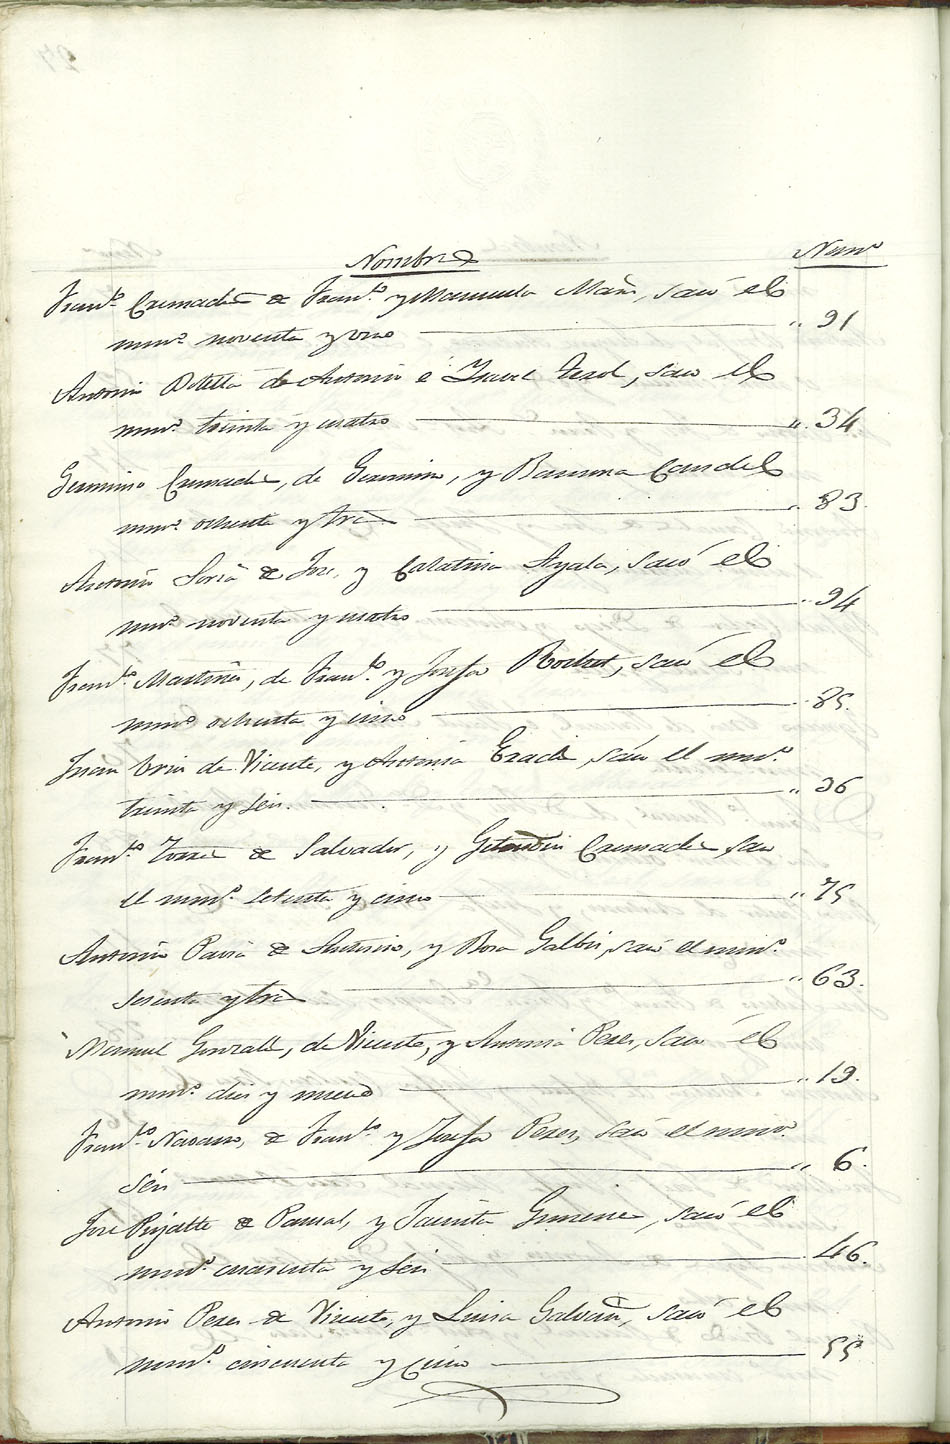 Nombres Numº
Franco. Cremades de Franco. y Manuela Mañ, sacó el
numº. noventa y uno 91
Antonio Botella de Antonio é Ysavel Terol, saco el
numº. treinta y cuatro 34
Germino Cremades, de Germino, y Ramona Candel
numº. ochenta y tres 83
Antonio Soria de Jose, y Catatina Ayala, sacó el
numº. noventa y cuatro 94
Franco. Martines, de Franco. y Josefa sacó el
numº ochenta y cinco 85.
Juan de Vicente, y Antonia sacó el numº.
treinta y seis. 36
Franco. Torres de Salvador, y Cremades saco
el numº. setenta y cinco 75
Antonio Pavia de Antonio, y Rosa Galbis, sacó el numº.
sesenta y tres 63.
Manuel Gonzales, de Vicente, y Antonia Peres, sacó el
numº. dies y nueve 19.
Franco. Navarro, de Franco. y Josefa Peres, sacó el numº.
séis 6.
Jose de Pascual, y Jacinta Gimenes, sacó el
numº. cuarenta y seis 46.
Antonio Peres de Vicente, y Luisa Galvañ, sacó el
numº. cincuenta y cinco 55